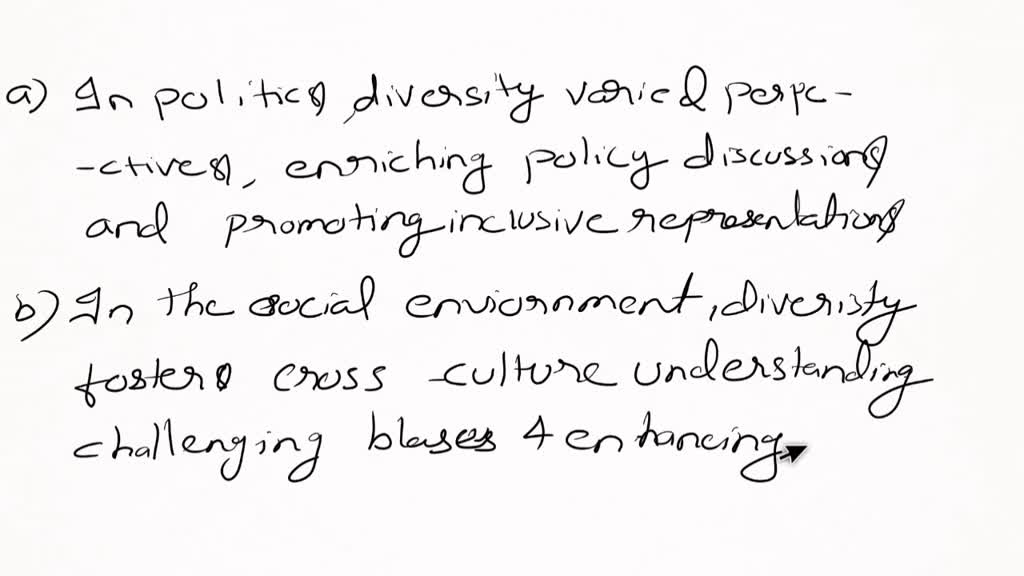 a) In politics, diversity varied perpe-
-ctives, enriching policy discussions
and promoting inclusive representations
b) In the social enviornment, diveristy
fosters cross-culture understanding
challenging biases & enhancing